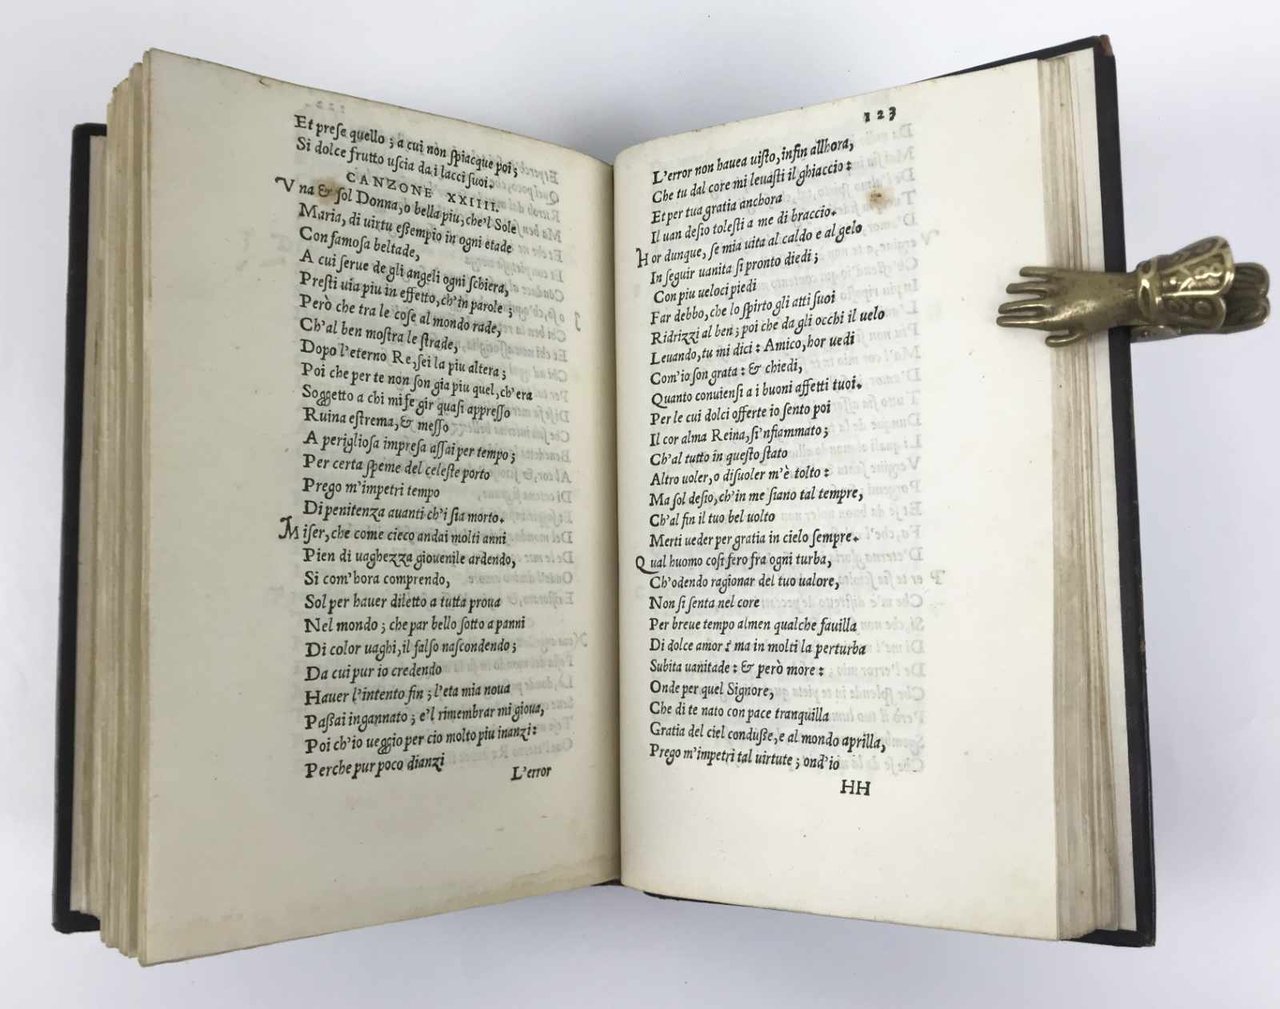 Et prese quello ; a cui non spiacque poi ;
Si dolce frutto uscia da i lacci suoi.
CANZONE XXIIII.
Vna & sol Donna, o bella piu, che'l Sole
Maria, di uirtu essempio in ogni etade
Con famosa beltade,
A cui serue de gli angeli ogni schiera,
Presti uia piu in effetto, ch'in parole ;
Però che tra le cose al mondo rade,
Ch'al ben mostra le strade,
Dopo l'eterno Re, sei la piu altera ;
Poi che per te non son gia piu quel, ch'era
Soggetto a chi mi fe gir quasi appresso
Ruina estrema, & messo
A perigliosa impresa assai per tempo ;
Per certa speme del celeste porto
Prego m'impetri tempo
Di penitenza auanti ch'i sia morto.
Miser, che come cieco andai molti anni
Pien di uaghezza giouenile ardendo,
Si com'hora comprendo,
Sol per hauer diletto a tutta proua
Nel mondo ; che par bello sotto a panni
Di color uaghi, il falso nascondendo ;
Da cui pur io credendo
Hauer l'intento fin ; l'eta mia noua
Passai ingannato ; e'l rimembrar mi gioua,
Poi ch'io ueggio per cio molto piu inanzi:
Perche pur poco dianzi
L'error
123
L'error non hauea uisto, infin allhora,
Che tu dal core mi leuasti il ghiaccio :
Et per tua gratia anchora
Il uan desio tolesti a me di braccio.
Hor dunque, se mia uita al caldo e al gelo
In seguir uanita si pronto diedi ;
Con piu ueloci piedi
Far debbo, che lo spirto gli atti suoi
Ridrizzi al ben ; poi che da gli occhi il uelo
Leuando, tu mi dici : Amico, hor uedi
Com'io son grata : & chiedi,
Quanto conuiensi a i buoni affetti tuoi.
Per le cui dolci offerte io sento poi
Il cor alma Reina, si'nfiammato ;
Ch'al tutto in questo stato
Altro uoler, o disuoler m'è tolto :
Ma sol desio, ch'in me siano tal tempre,
Ch'al fin il tuo bel uolto
Merti ueder per gratia in cielo sempre.
Qual huomo cosi fero fra ogni turba,
Ch'odendo ragionar del tuo ualore,
Non si senta nel core
Per breue tempo almen qualche fauilla
Di dolce amor : ma in molti la perturba
Subita uanitade : & però more :
Onde per quel Signore,
Che di te nato con pace tranquilla
Gratia del ciel condusse, e al mondo aprilla,
Prego m'impetri tal uirtute ; ond'io
HH